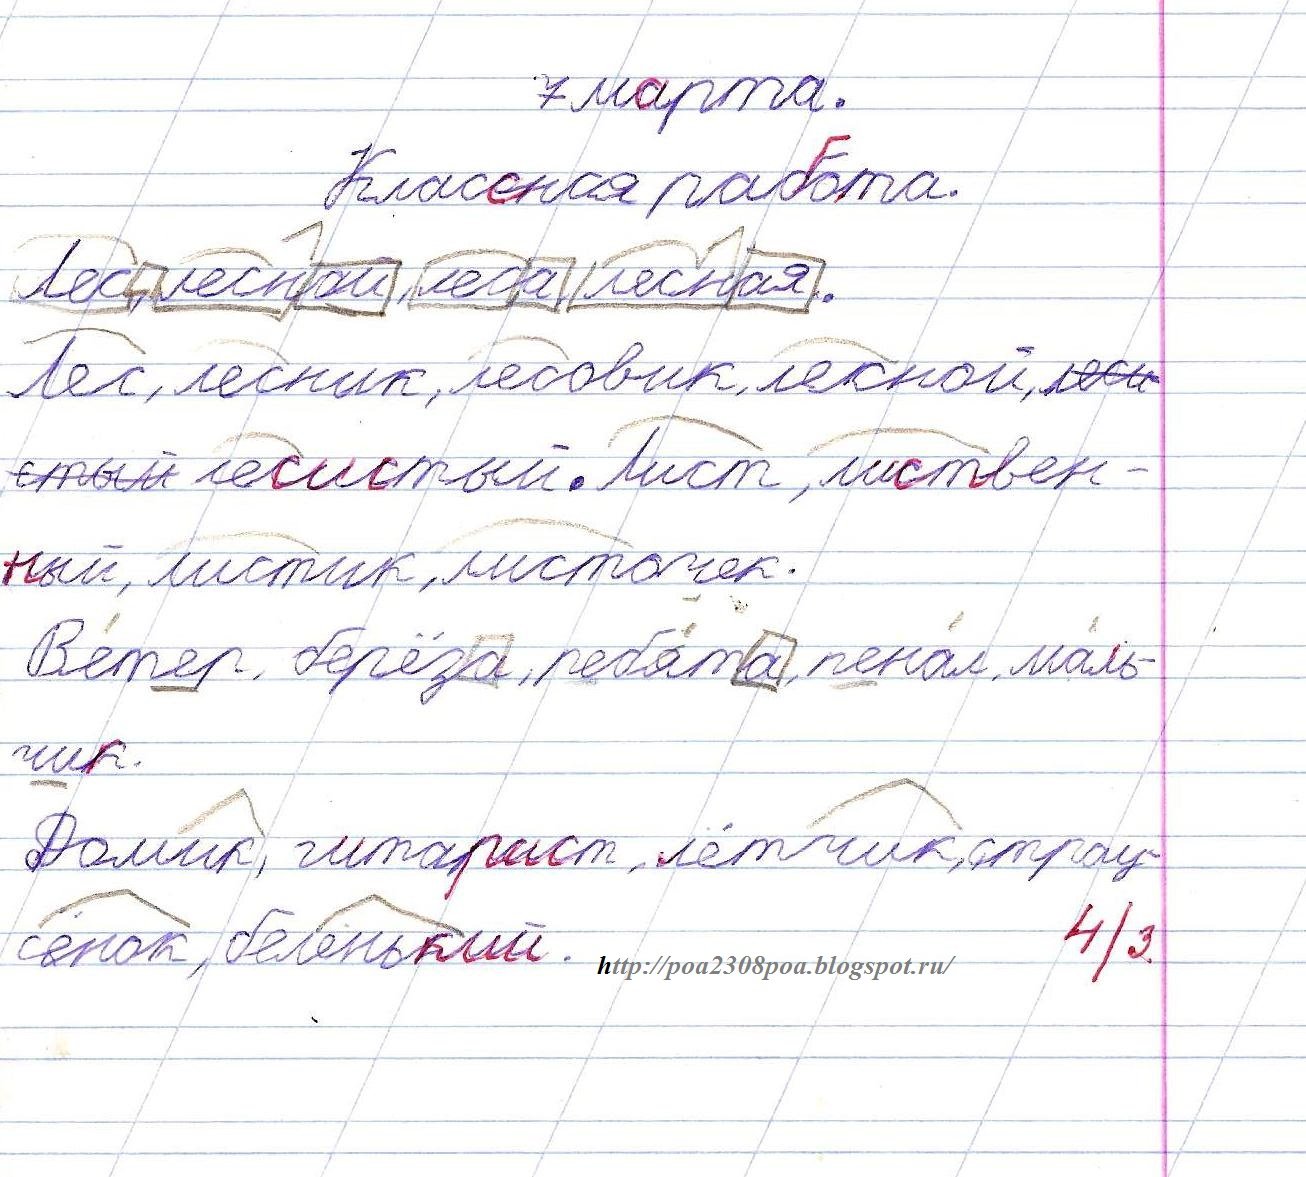 7 марта.
Классная работа.
Лес, лесной, леса, лесная.
Лес, лесник, лесовик, лекной, леси
стый лесистый. Лист, листвен-
ный, листик, листочек.
Ветер, берёза, ребята, пенал, маль-
чик.
Домик, гитарист, лётчик, страу-
сёнок, беленький.
4/3
http://poa2308poa.blogspot.ru/